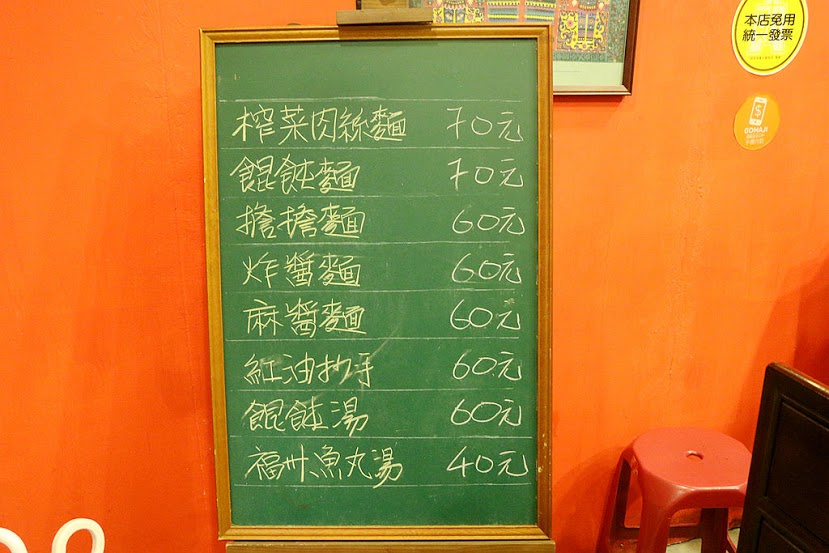 本店免用
統一發票
GOMAJI
榨菜肉絲麵 70元
餛飩麵 70元
擔擔麵 60元
炸醬麵 60元
麻醬麵 60元
紅油抄手 60元
餛飩湯 60元
福州魚丸湯 40元